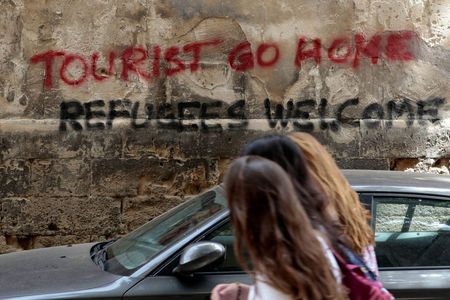 TOURIST GO HOME
REFUGEES WELCOME